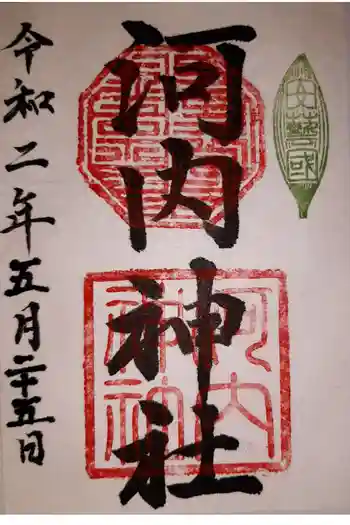 河内神社
令和二年五月二十五日
安藝國
河内
神社